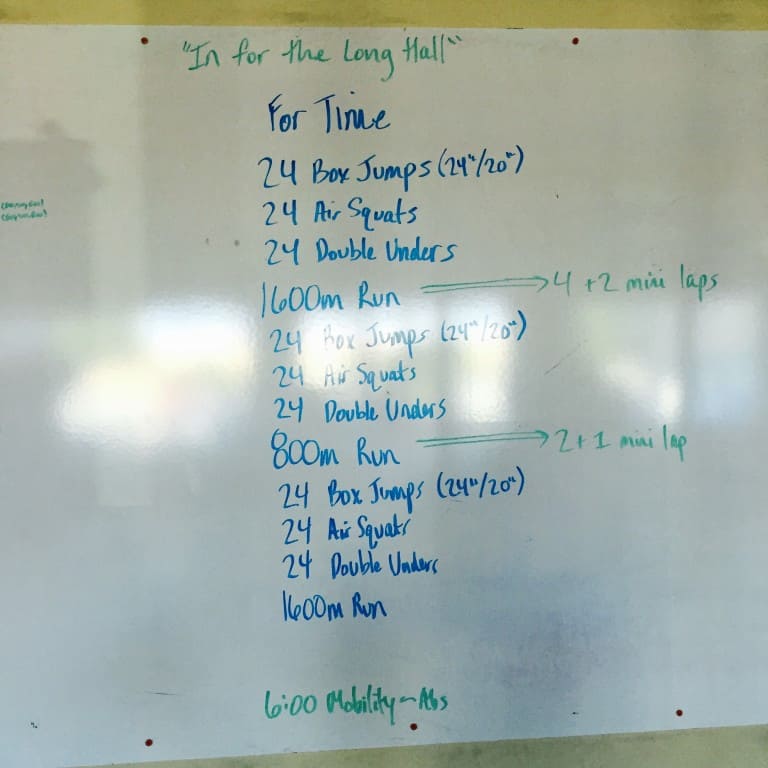 "In for the Long Hall"
For Time
24 Box Jumps (24"/20")
24 Air Squats
24 Double Unders
1600m Run → 4 + 2 mini laps
24 Box Jumps (24"/20")
24 Air Squats
24 Double Unders
800m Run → 2 + 1 mini lap
24 Box Jumps (24"/20")
24 Air Squats
24 Double Unders
1600m Run
6:00 Mobility - Abs